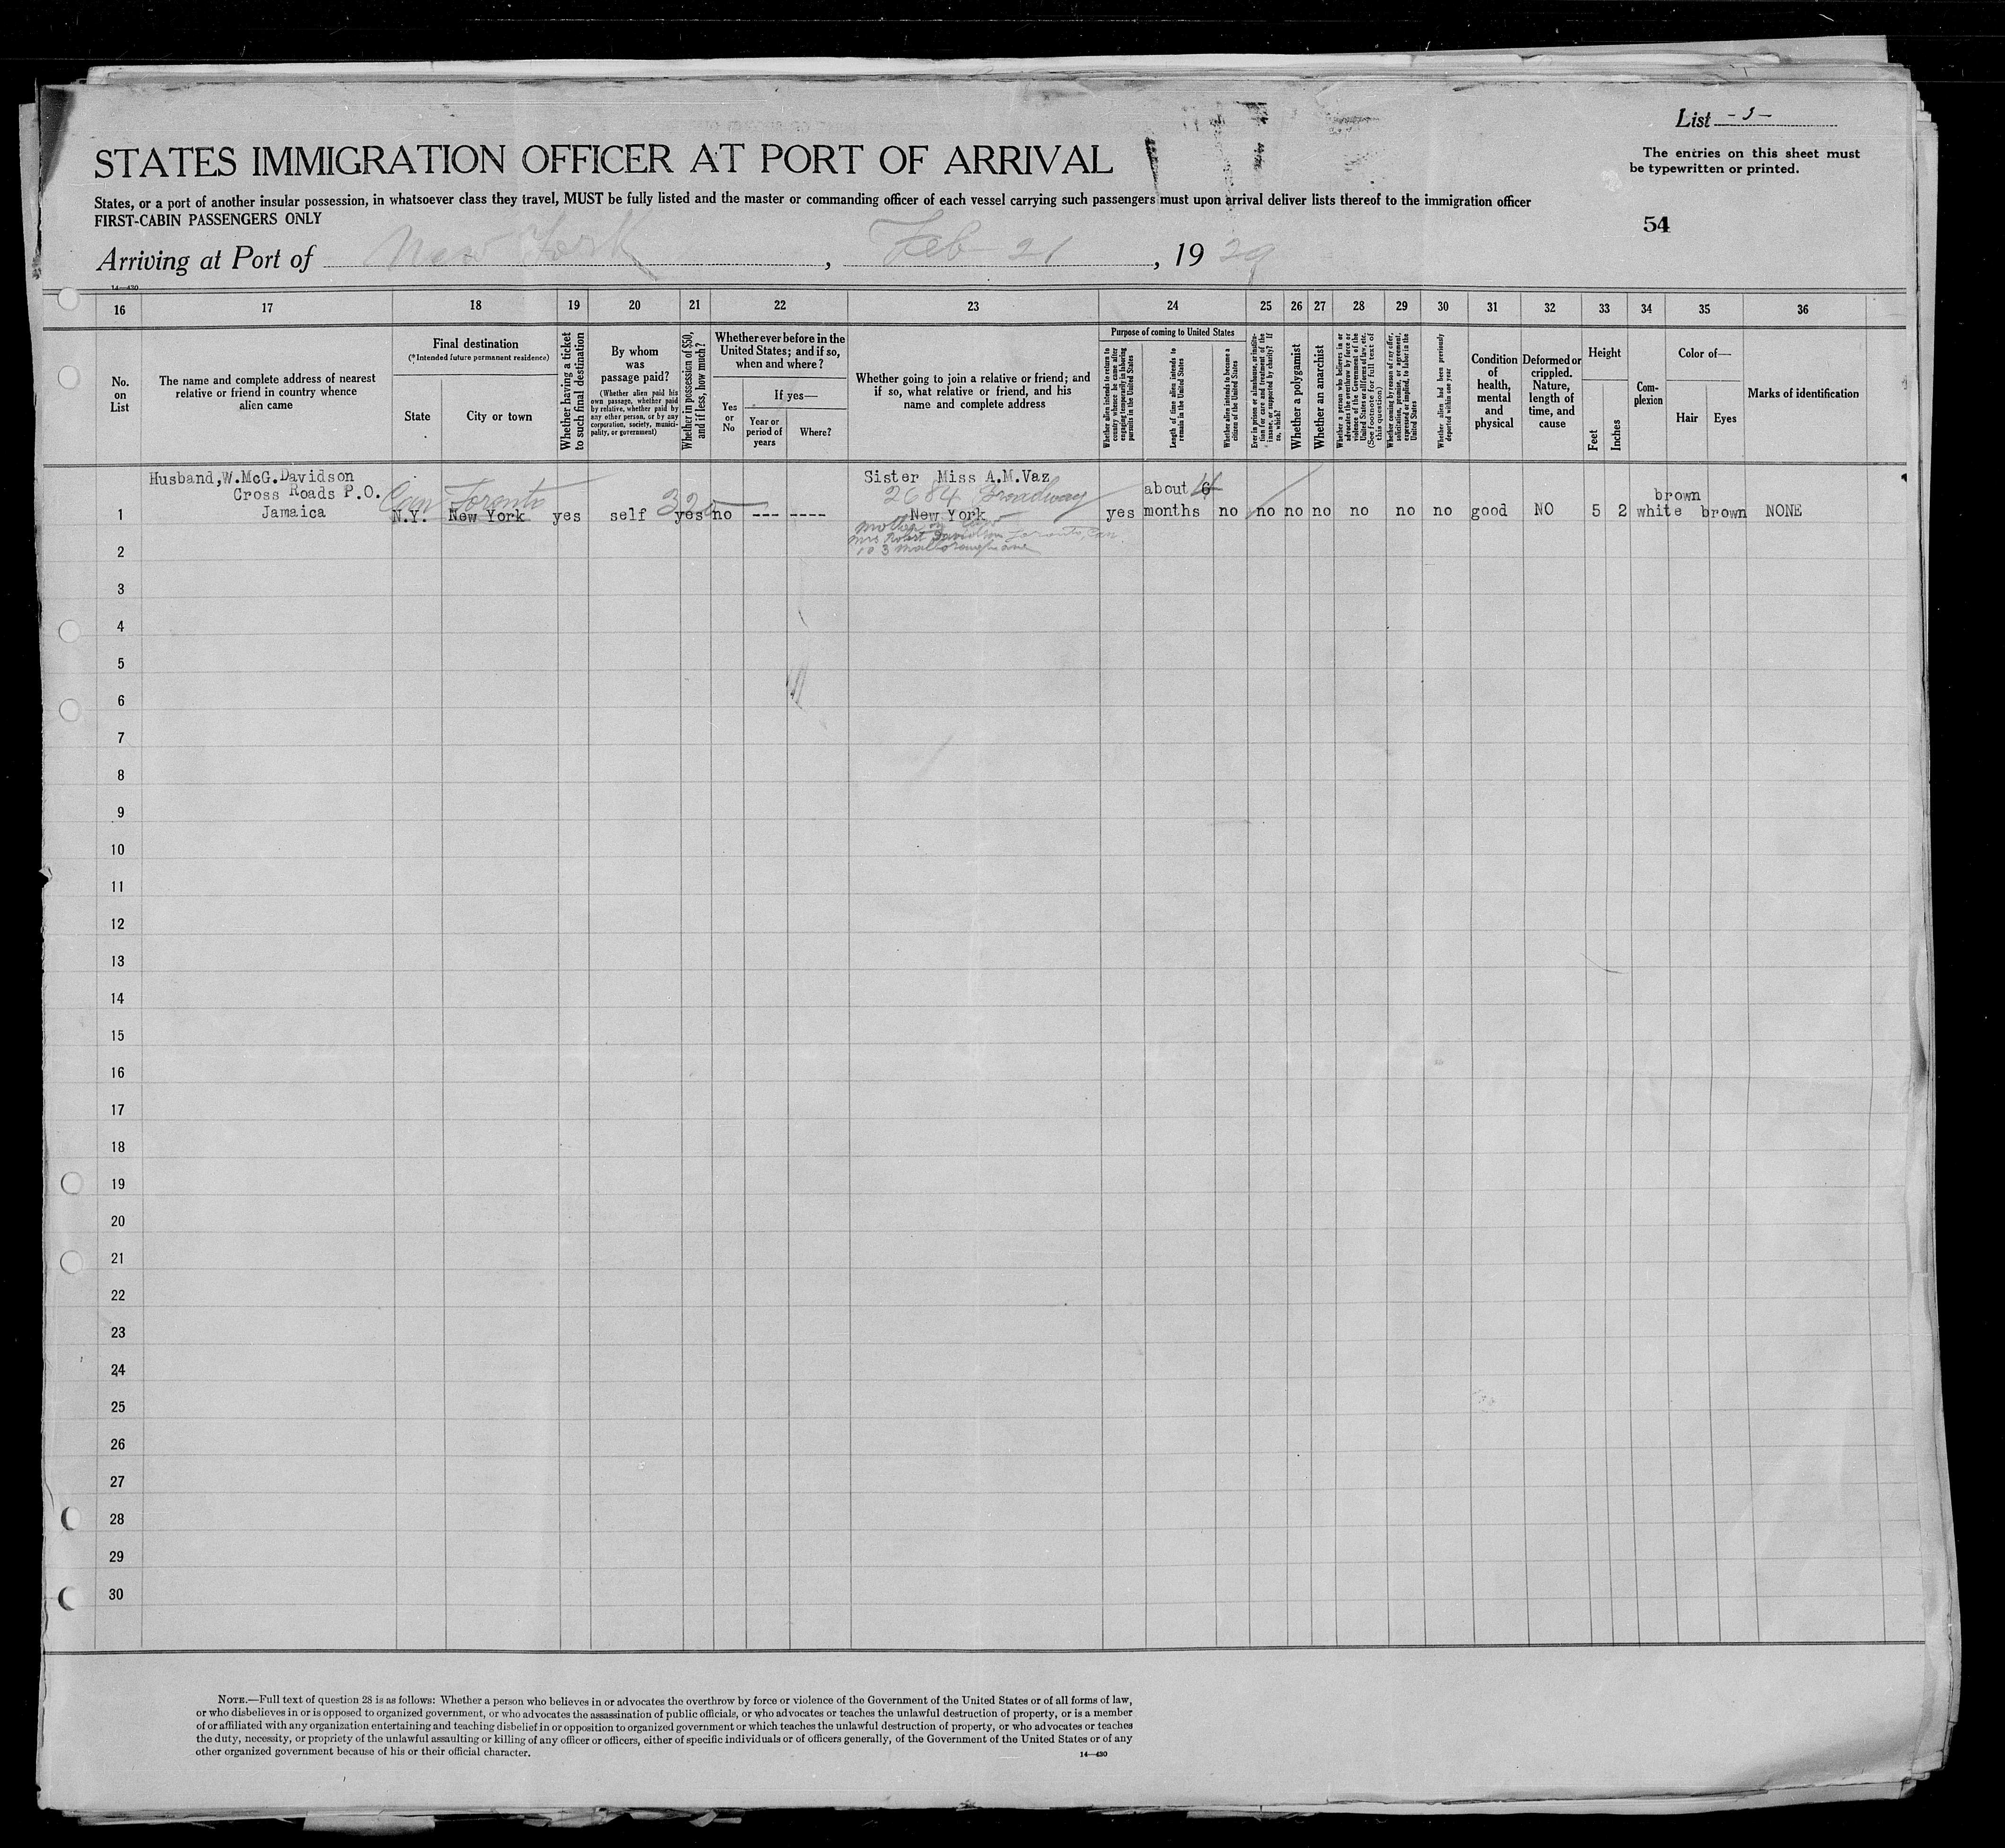 List - 3 -
The entries on this sheet must
be typewritten or printed.
STATES IMMIGRATION OFFICER AT PORT OF ARRIVAL
States, or a port of another insular possession, in whatsoever class they travel, MUST be fully listed and the master or commanding officer of each vessel carrying such passengers must upon arrival deliver lists thereof to the immigration officer
FIRST-CABIN PASSENGERS ONLY
54
Arriving at Port of New York, Feb 21, 1929
14—430
16 17 18 19 20 21 22 23 24 25 26 27 28 29 30 31 32 33 34 35 36
No.
on
List
The name and complete address of nearest
relative or friend in country whence
alien came
Final destination
(*Intended future permanent residence)
State
City or town
Whether having a ticket
to such final destination
By whom
was
passage paid?
(Whether alien paid his
own passage, whether paid
by relative, whether paid by
any other person, or by any
corporation, society, munici-
pality, or government)
Whether in possession of $50,
and if less, how much?
Whether ever before in the
United States; and if so,
when and where?
Yes
or
No
If yes—
Year or
period of
years
Where?
Whether going to join a relative or friend; and
if so, what relative or friend, and his
name and complete address
Purpose of coming to United States
Whether alien intends to return to
country whence he came after
engaging temporarily in laboring
pursuits in the United States
Length of time alien intends to
remain in the United States
Whether alien intends to become a
citizen of the United States
Ever in prison or almshouse, or institu-
tion for care and treatment of the
insane, or supported by charity? If
so, which?
Whether a polygamist
Whether an anarchist
Whether a person who believes in or
advocates the overthrow by force or
violence of the Government of the
United States or all forms of law, etc.
(See footnote for full text of
this question)
Whether coming by reason of any offer,
solicitation, promise, or agreement,
expressed or implied, to labor in the
United States
Whether alien had been previously
deported within one year
Condition
of
health,
mental
and
physical
Deformed or
crippled.
Nature,
length of
time, and
cause
Height
Feet
Inches
Com-
plexion
Color of—
Hair
Eyes
Marks of identification
Husband,W.McG.Davidson
Cross Roads P.O.
Jamaica
Can Toronto
1 N.Y. New York yes self 320 yes no --- ----
Sister Miss A.M.Vaz
2684 Broadway
New York
mother in law
Mrs Robert Davidson Toronto, Can
103
yes about 6 4
months no no no no no no no good NO 5 2 white brown brown NONE
2
3
4
5
6
7
8
9
10
11
12
13
14
15
16
17
18
19
20
21
22
23
24
25
26
27
28
29
30
NOTE.—Full text of question 28 is as follows: Whether a person who believes in or advocates the overthrow by force or violence of the Government of the United States or of all forms of law,
or who disbelieves in or is opposed to organized government, or who advocates the assassination of public officials, or who advocates or teaches the unlawful destruction of property, or is a member
of or affiliated with any organization entertaining and teaching disbelief in or opposition to organized government or which teaches the unlawful destruction of property, or who advocates or teaches
the duty, necessity, or propriety of the unlawful assaulting or killing of any officer or officers, either of specific individuals or of officers generally, of the Government of the United States or of any
other organized government because of his or their official character.
14—430